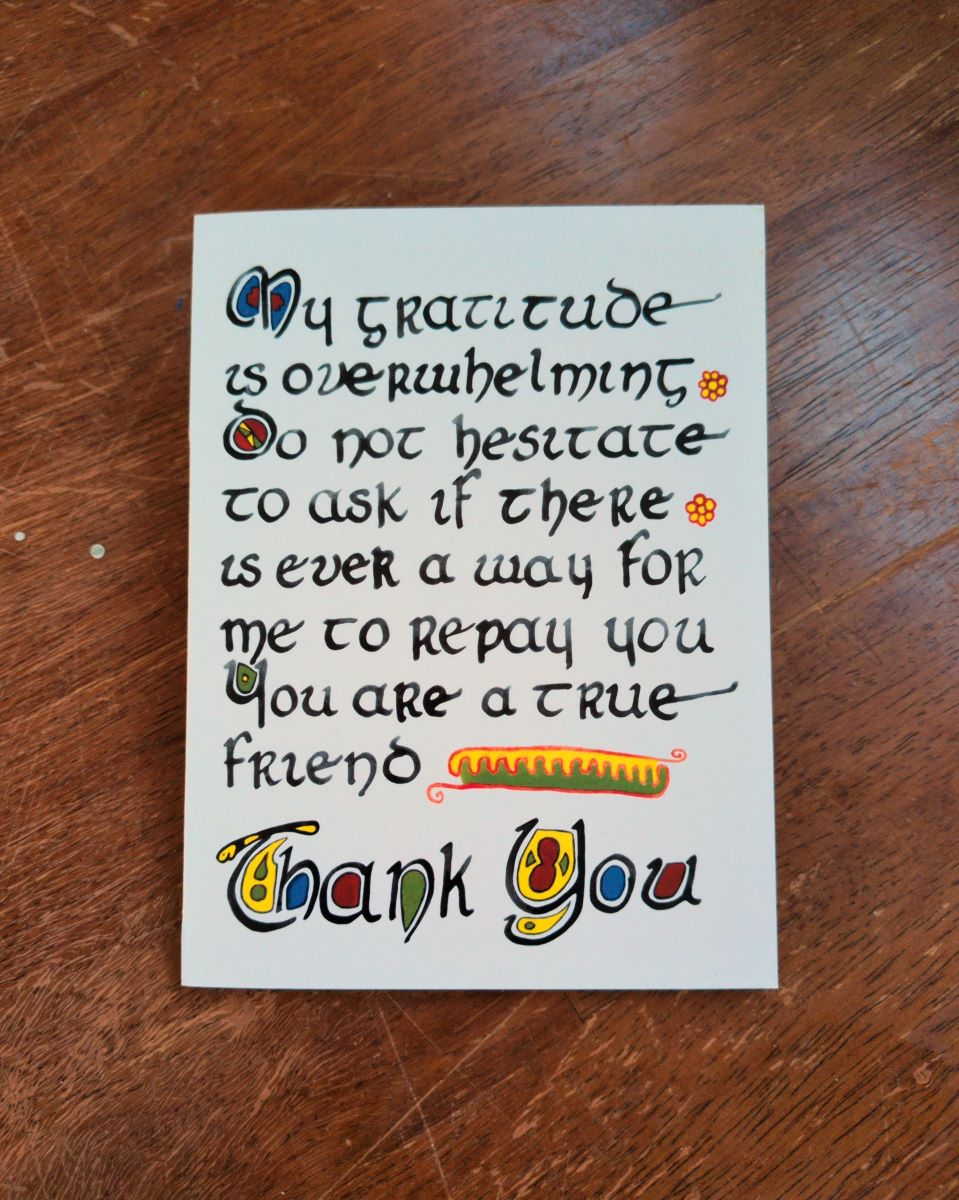 My gratitude
is overwhelming
Do not hesitate
to ask if there
is ever a way for
me to repay you
You are a true
friend
Thank You